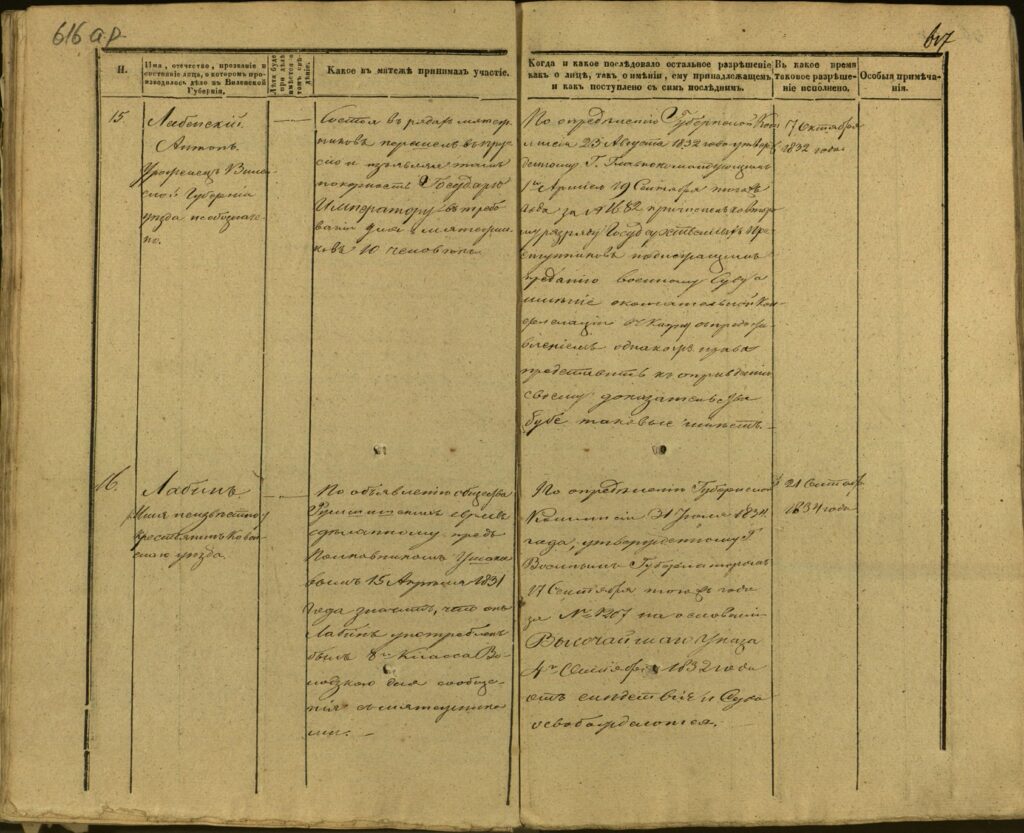 616 а.р.
617
И.
Имя, отчество, прозваніе и
состояніе лица, о которомъ про-
изводилось дѣло въ Виленской
Губерніи.
Какое въ мятежѣ принималъ участіе.
Когда и какое послѣдовало остальное разрѣшеніе
какъ о лицѣ, такъ о имѣніи, ему принадлежащемъ
и какъ поступлено съ симъ послѣднимъ.
Въ какое время
таковое разрѣше-
ніе исполнено.
Особыя примѣча-
нія.
15.
Лабенскій
Антонъ
Уроженецъ Вилен-
ской Губерніи
уѣзда необозначе-
но.
Состоя въ рядахъ мятеж-
никовъ перешелъ въ Пру-
сію и изъявляя тамъ
покорность Государю
Императору
10 человѣкъ.
По опредѣленію Губернской Ком-
мисіи 23 Августа 1832 года утверж-
денному Г. Главнокомандующимъ
1й Арміею 19 Сентября того же
года за № 1182 причисленъ ко второ-
му разряду Государственныхъ пре-
ступниковъ
преданію военному Суду а
имѣніе окончательной Кон-
фискаціи въ Казну съ предостав-
леніемъ однакожъ права
представить къ оправданію
своему доказательства
буде таковые имѣетъ.
17 Октября
1832 года
16.
Лабинъ
Имя неизвѣстно
крестьянинъ Ковен-
скаго уѣзда.
По объявленію общества
евреевъ
сдѣланному предъ
Полковникомъ Ушако-
вымъ 15 Апрѣля 1831
года значитъ, что онъ
Лабинъ употребленъ
былъ 8го Класса
для сообще-
нія съ мятежника-
ми. —
По опредѣленію Губернской
Коммисіи 31 Іюля 1834
года, утвержденному Г.
Военнымъ Губернаторомъ
17 Сентября того же года
за № 1267 на основаніи
Высочайшаго Указа
4го Сентября 1832 года
отъ слѣдствія и Суда
освобождается.
21 Сентября
1834 года